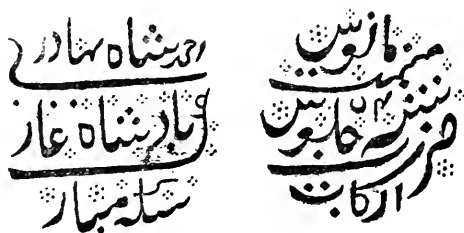 احمد شاه بهادر
بادشاه غازی
سکه مبارک
مانوس
میمنت
سنه جلوس
ضرب
ارکات